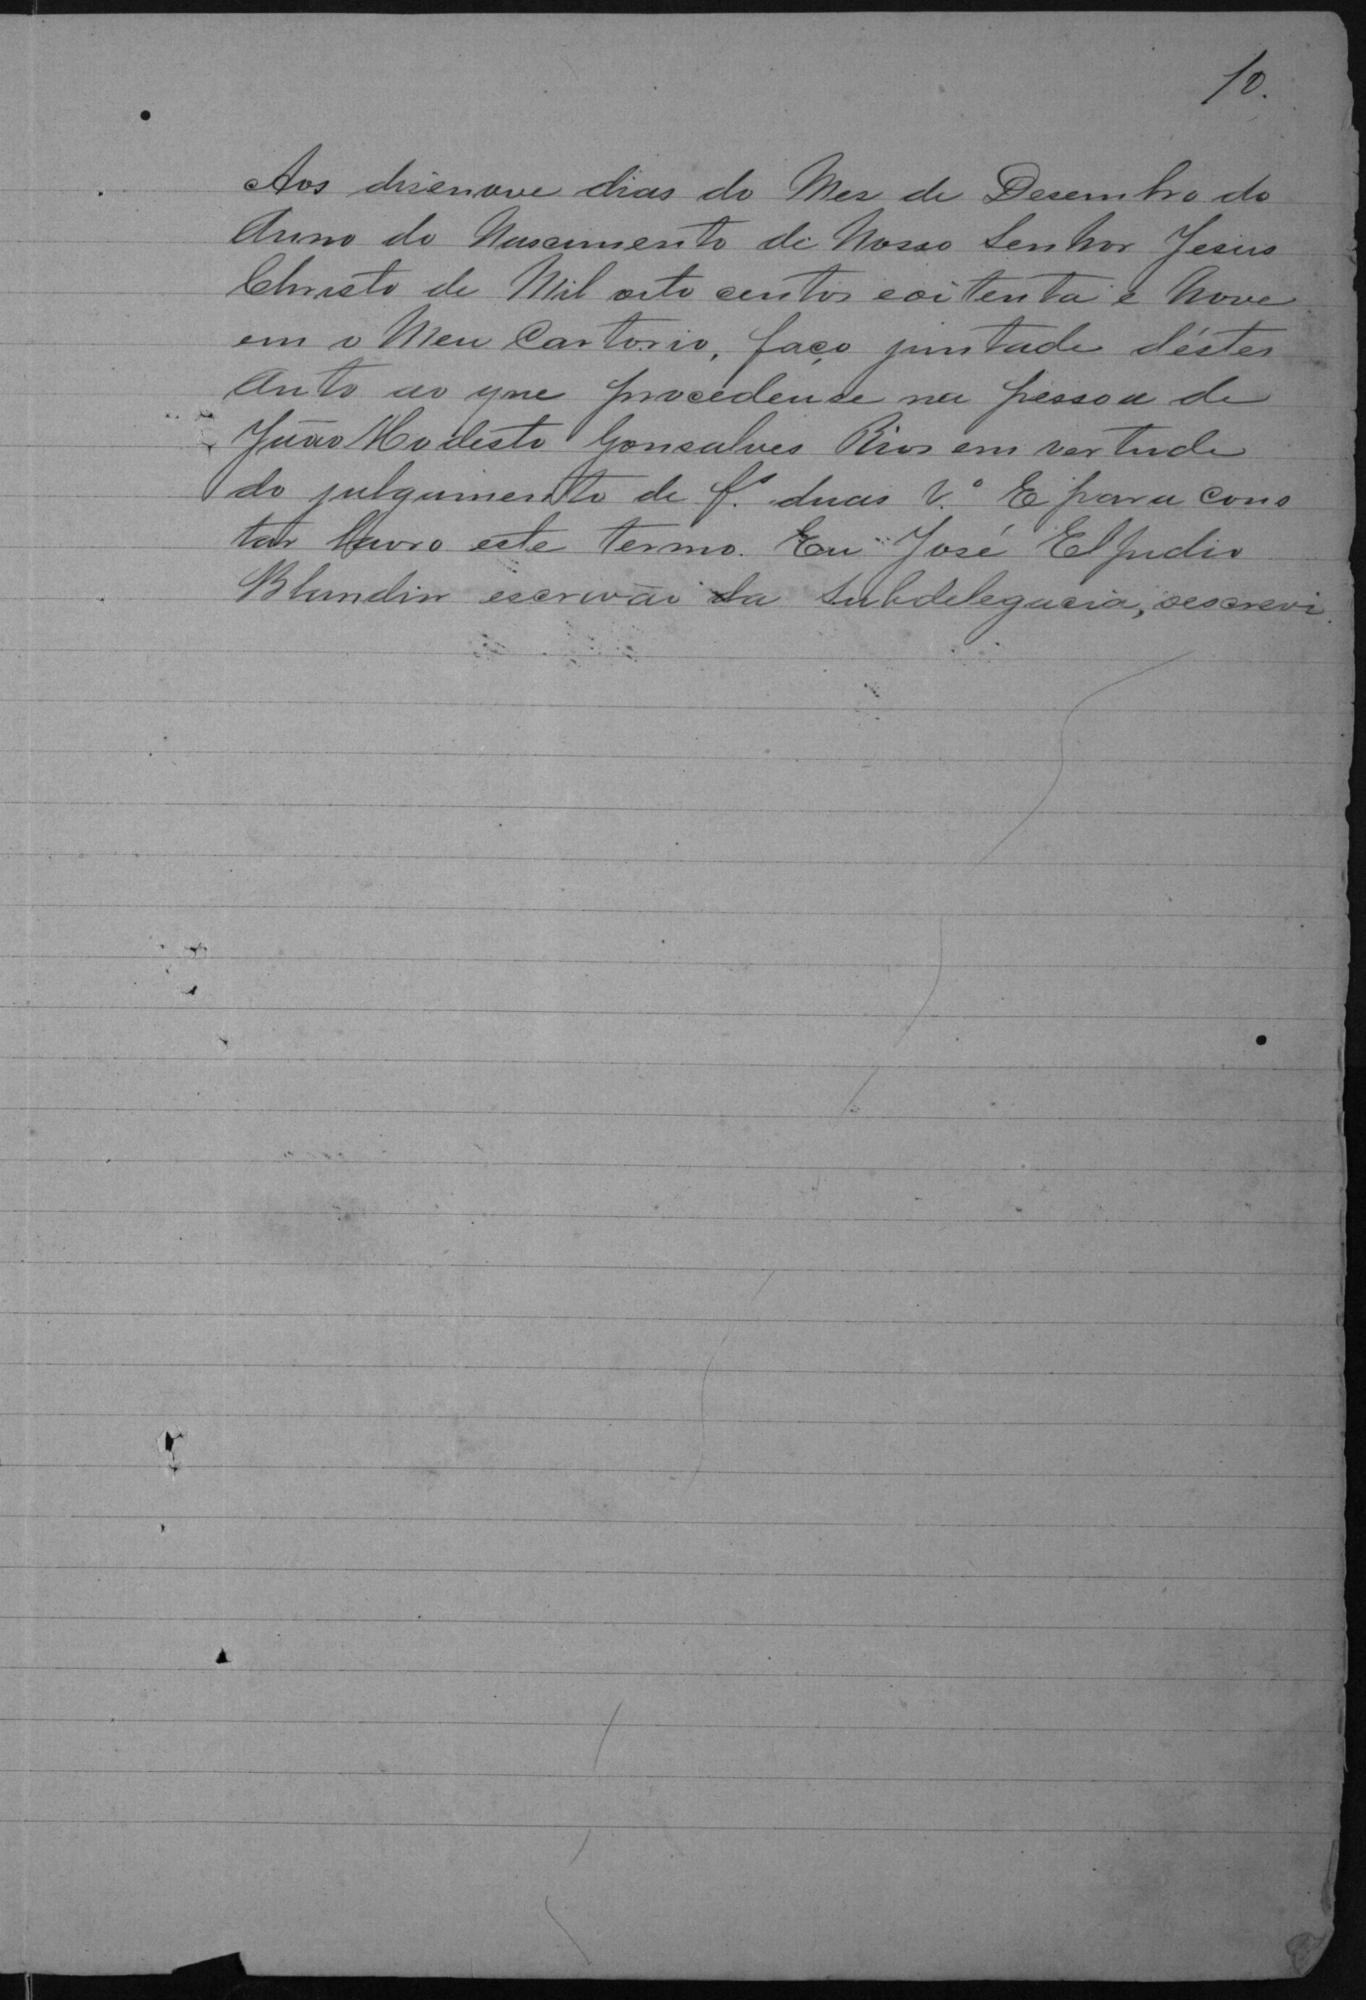 10.
Aos disenove dias do Mes de Desembro do
Anno do Nascimento de Nosso Senhor Jesus
Christo de Mil oito centos eoitenta e Nove
em o Meu Cartorio, faço juntada déstes
Auto ao que procedeuse na pessoa de
João Modesto Gonsalves Rios em vertude
do julgamento de fˢ. duas V.º E para cons
tar lavro este termo. Eu José Elpidio
Blandin escrivão da Subdelegacia, oescrevi.